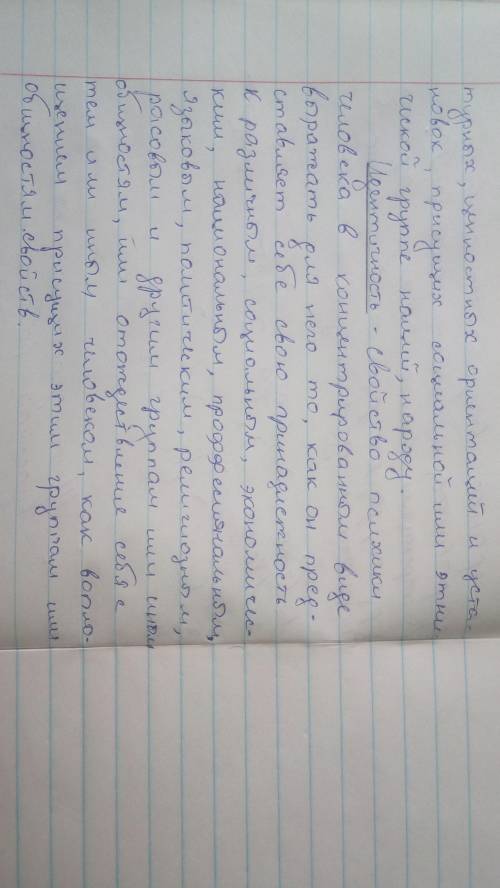 турных, ценностных ориентаций и уста-
новок, присущих социальной или этни
ческой группе наций, народу.
Идентичность - свойство психики
человека в концентрированном виде
выражать для него то, как он пред-
ставляет себе свою принадлежность
к различным, социальном, экономичес-
ким, национальным, профессиональным,
языковым, политическим, религиозным,
расовым и другим группам или иным
общностям, или отождествление себя с
тем или иным человеком, как вопло-
щением присущих этим группам или
общностям свойств.